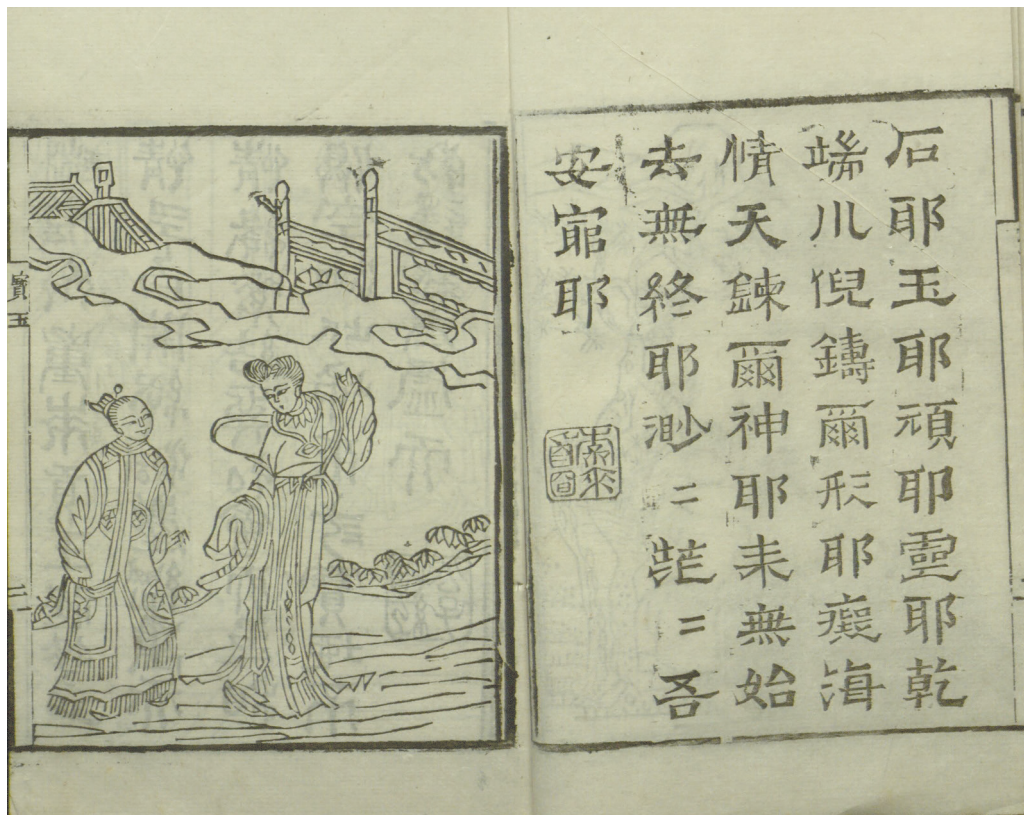 石耶玉耶頑耶靈耶乾
端儿倪鑄爾形耶癡海
情天鍊爾神耶来無始
去無終耶渺〻茫〻吾
安窮耶
寶玉